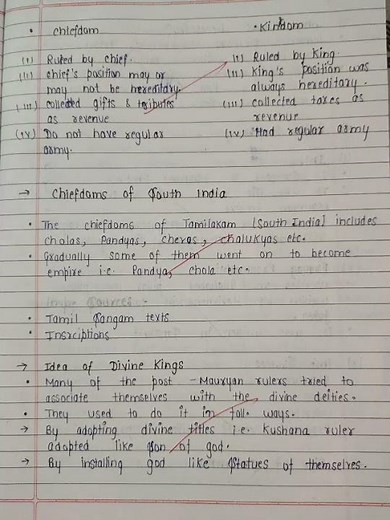 • chiefdom • Kindom
(i) Ruled by chief. (i) Ruled by King
(ii) chief's position may or (ii) King's position was
may not be hereditary. always hereditary.
(iii) collected gifts & tributes (iii) collected taxes as
as revenue revenue
(iv) Do not have regular (iv) Had regular army
army.
→ Chiefdoms of South India
• The chiefdoms of Tamilakam (South India) includes
cholas, Pandyas, cheras, chalukyas etc.
• Gradually some of them went on to become
empire i.e. Pandya, chola etc.
• Tamil Sangam texts
• Insciptions
→ Idea of Divine Kings
• Many of the post - Mauryan rulers tried to
associate themselves with the divine deities.
• They used to do it in foll. ways.
→ By adopting divine titles i.e. Kushana ruler
adopted like Son of god.
→ By installing god like Statues of themselves.